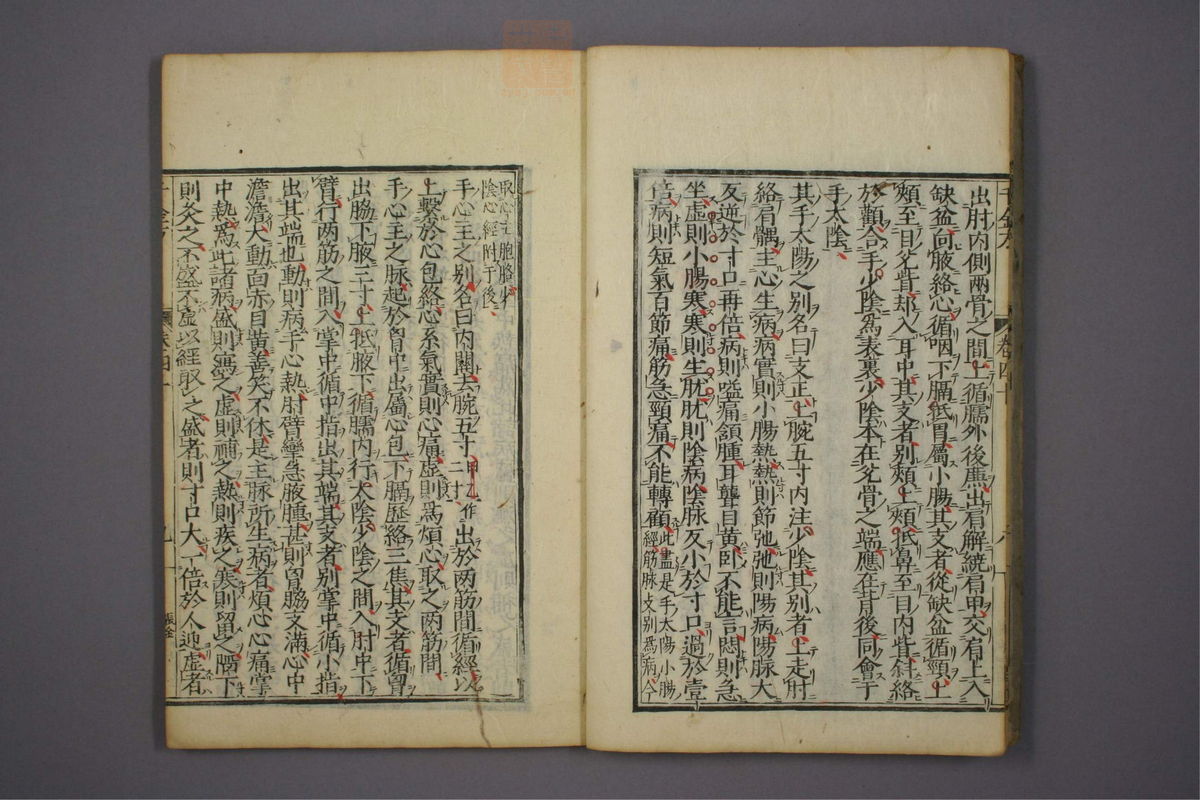 出肘内側兩骨之間上循臑外後廉出肩解繞肩甲交肩上入
缺盆向腋絡心循咽下膈抵胃屬小腸其支者從缺盆循頸上
頰至目兌眥却入耳中其支者別頰上䪼抵鼻至目内眥斜絡
於顴合手少陰爲表裏少陰本在兌骨之端應在背後同會于
手太陰
其手太陽之別名曰支正上腕五寸内注少陰其別者上走肘
絡肩髃主心生病病實則小腸熱熱則節弛弛則陽病陽脉大
反逆於寸口再倍病則嗌痛頷腫耳聾目黄卧不能言悶則急
坐虛則小腸寒寒則生肬肬則陰病陰脉反小於寸口過於壹
倍病則短氣百節痛筋急頸痛不能轉顧此盡是手太陽小腸
經筋脉支別爲病今
取心主胞胳少
陰心經附于後
手心主之別名曰内關去腕五寸二寸甲乙作出於兩筋間循經以
上繫於心包絡心系氣實則心痛虛則爲煩心取之兩筋間
手心主之脉起於胷中出屬心包下膈歷絡三焦其支者循胷
出脇下腋三寸上抵腋下循臑内行太陰少陰之間入肘中下
臂行兩筋之間入掌中循中指出其端其支者別掌中循小指
出其端也動則病手心熱肘臂攣急腋腫甚則胷脇支滿心中
澹澹大動面赤目黄善笑不休是主脉所生病者煩心心痛掌
中熱爲此諸病盛則瀉之虛則補之熱則疾之寒則留之陷下
則灸之不盛不虛以經取之盛者則寸口大一倍於人迎虛者
千金方
卷四十
九
張全
千金方
卷四十
八